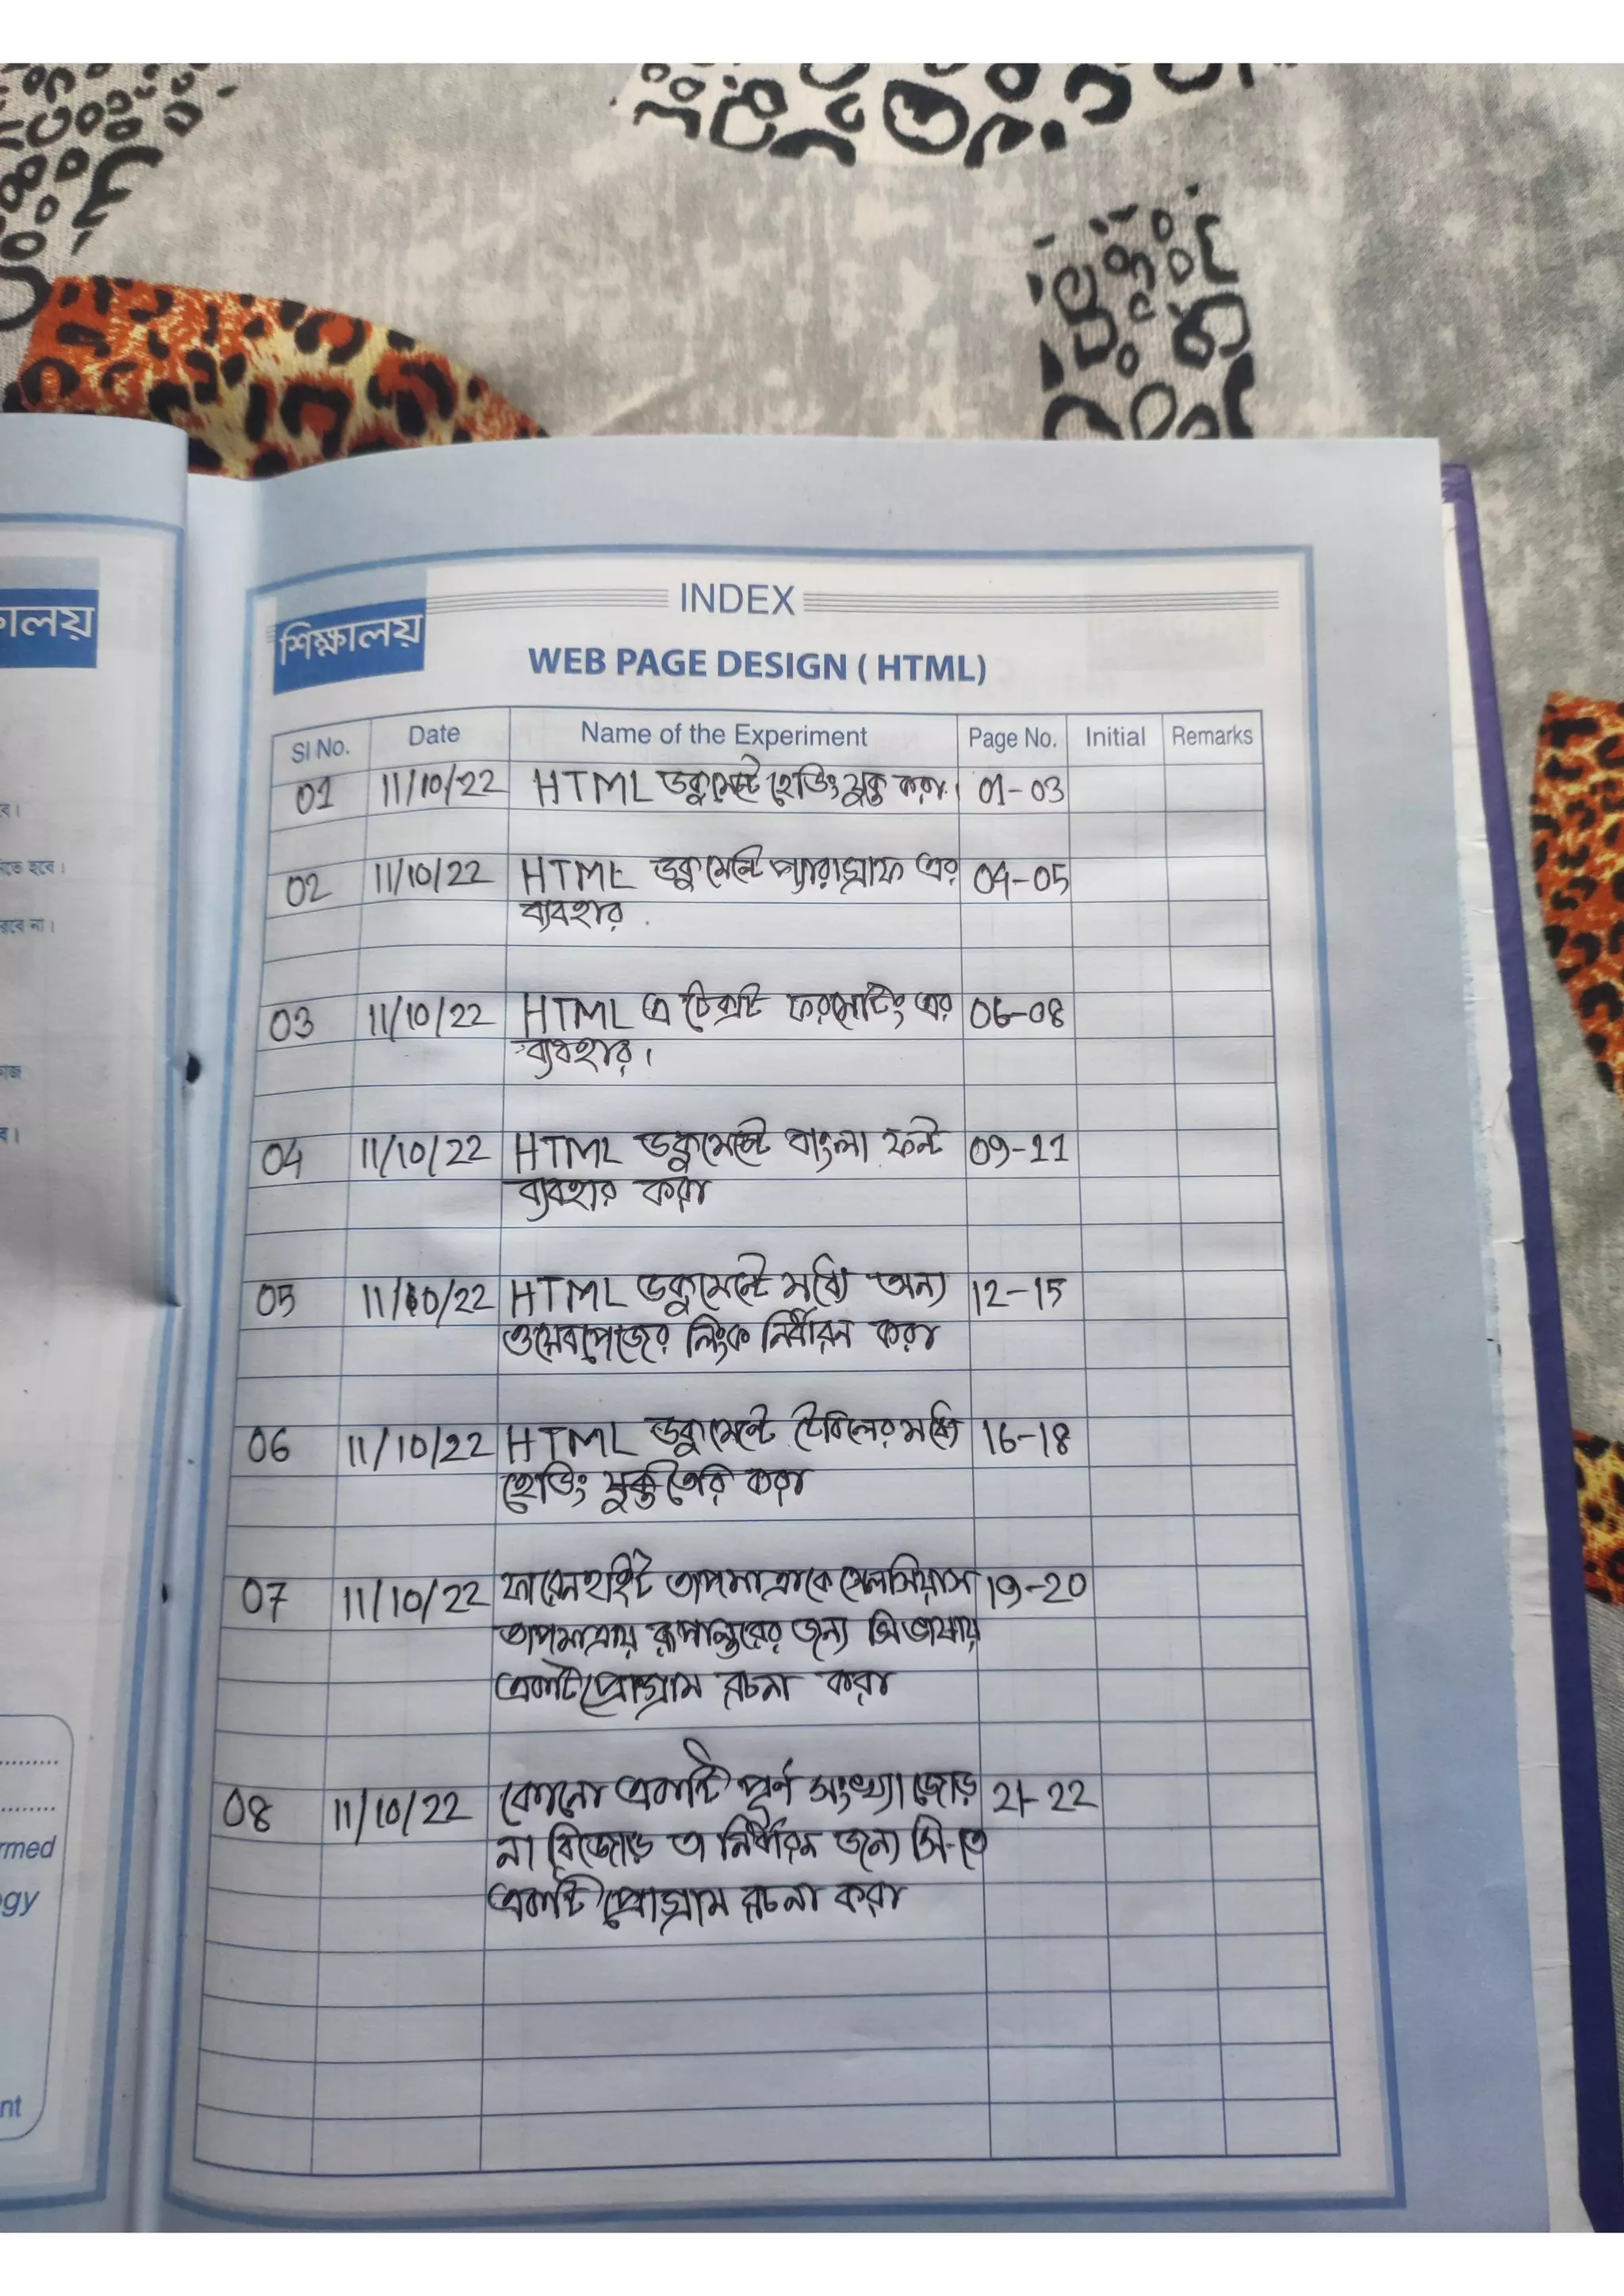 INDEX
শিক্ষালয়
WEB PAGE DESIGN ( HTML)
Sl No. Date Name of the Experiment Page No. Initial Remarks
01 11/10/22 HTML ডকুমেন্টে হেডিং যুক্ত করা। 01-03
02 11/10/22 HTML ডকুমেন্টে প্যারাগ্রাফ এর 04-05
ব্যবহার
03 11/10/22 HTML এ টেক্সট ফরমেটিং এর 06-08
ব্যবহার।
04 11/10/22 HTML ডকুমেন্টে বাংলা ফন্ট 09-11
ব্যবহার করা
05 11/10/22 HTML ডকুমেন্টে মধ্যে অন্য 12-15
ওয়েবপেজের লিংক নির্ধারন করা
06 11/10/22 HTML ডকুমেন্টে টেবিলের মধ্যে 16-18
হেডিং যুক্ত তৈরি করা
07 11/10/22 ফারেনহাইট তাপমাত্রাকে সেলসিয়াস 19-20
তাপমাত্রায় রূপান্তরের জন্য সি ভাষায়
একটি প্রোগ্রাম রচনা করা
08 11/10/22 কোনো একটি পূর্ন সংখ্যা জোড় 21-22
না বিজোড় তা নির্ধারন জন্য সি-তে
একটি প্রোগ্রাম রচনা করা
ালয়
বে।
তে হবে।
রবে না।
rmed
gy
nt